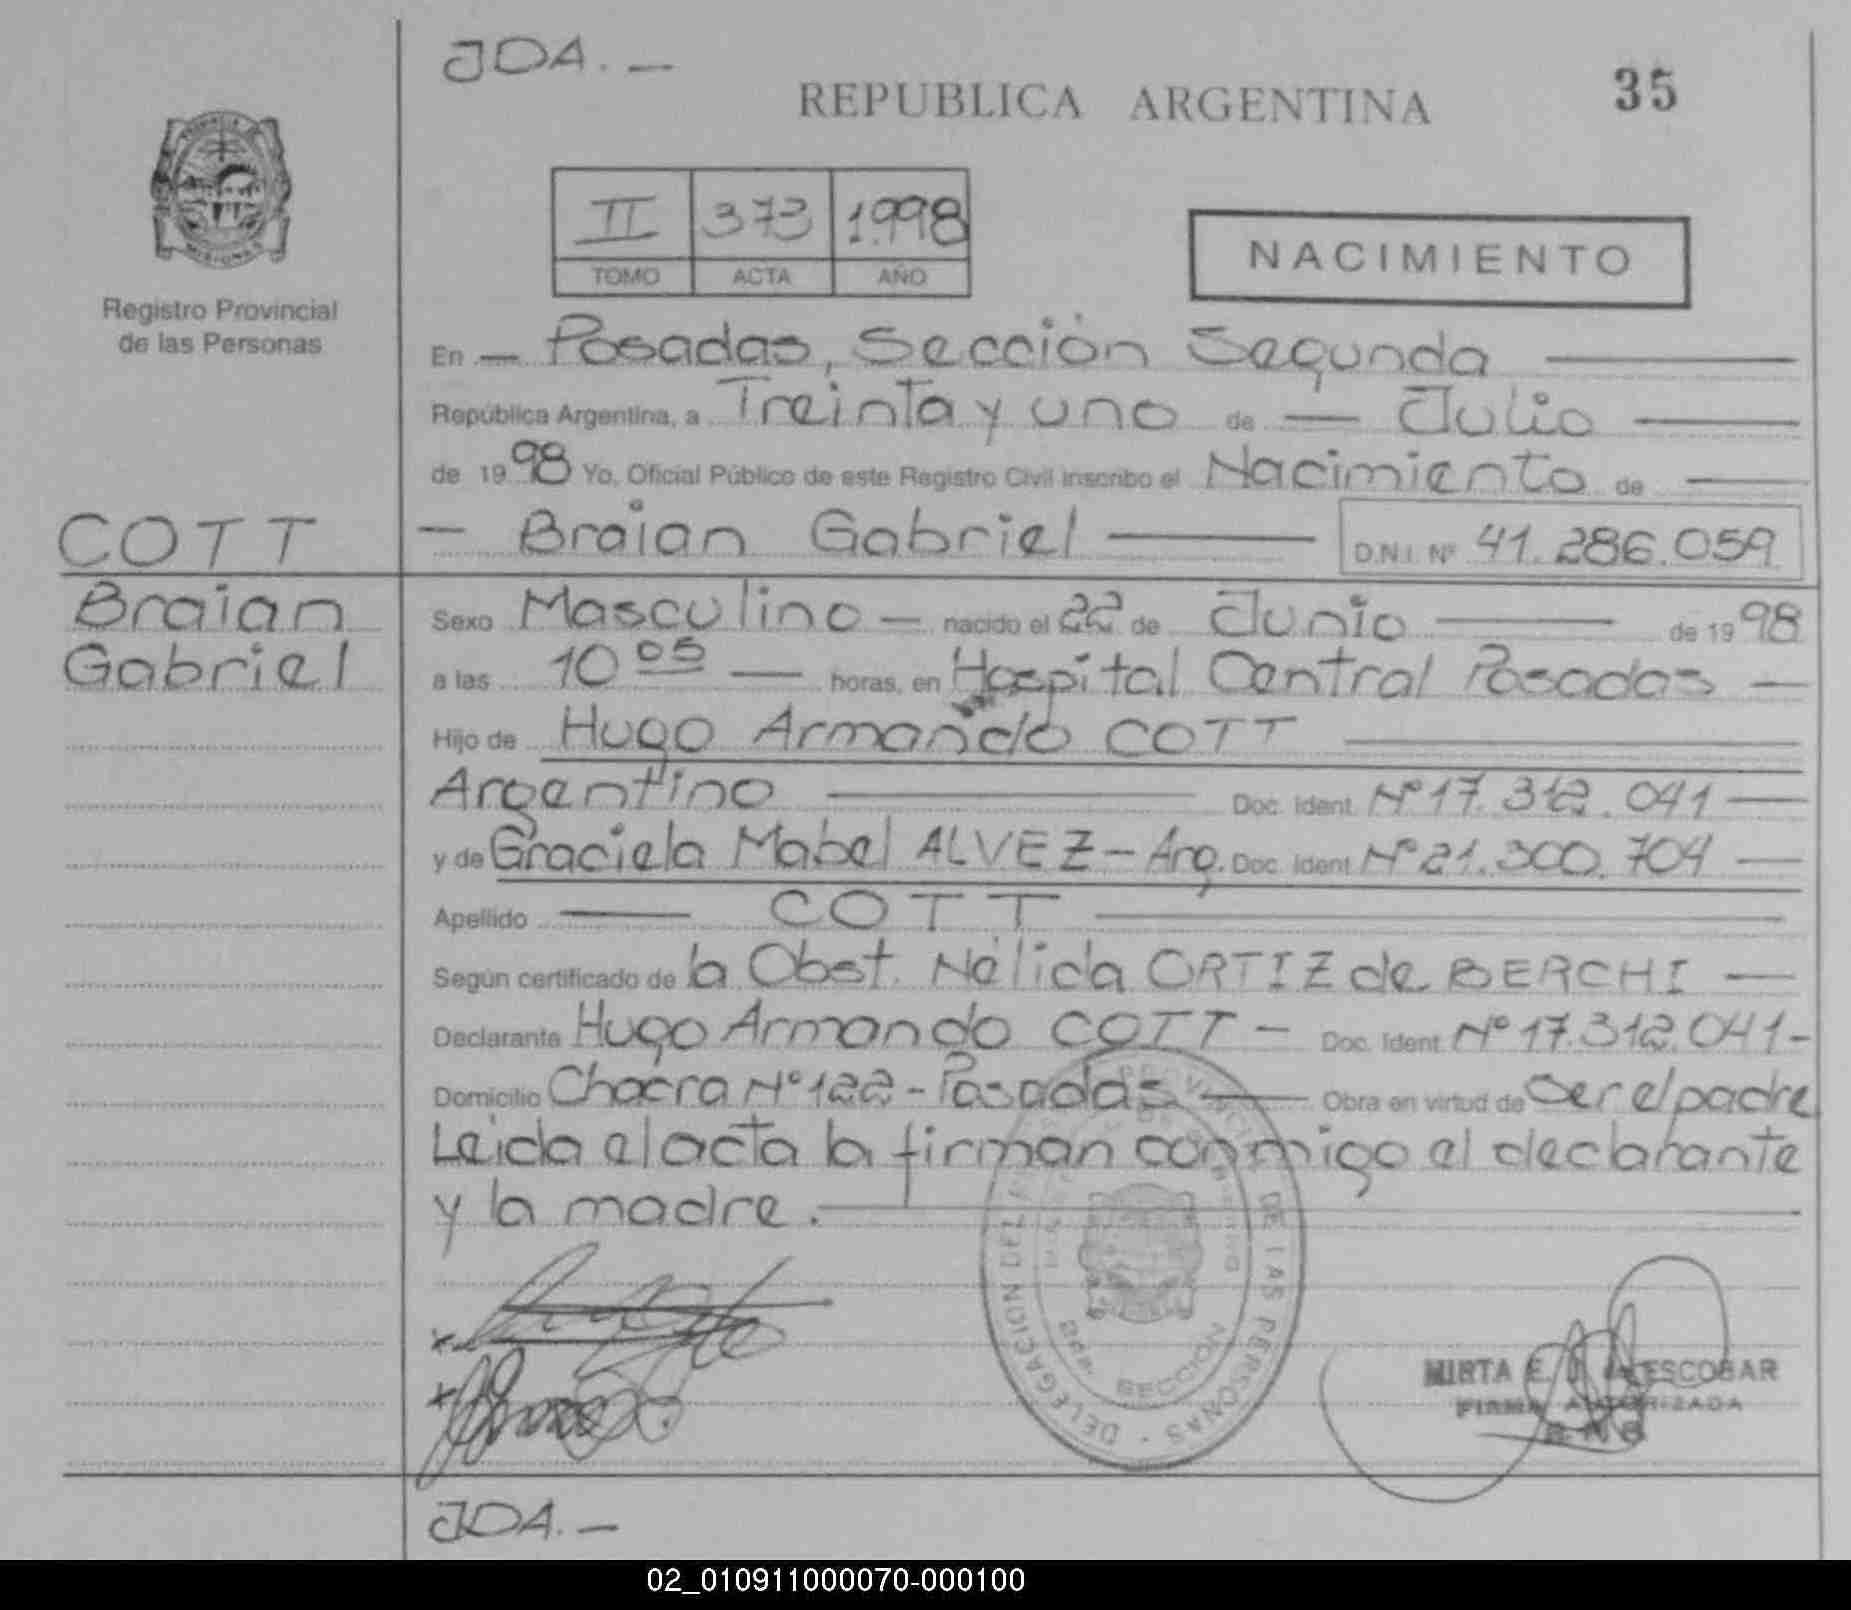 JDA. —
REPUBLICA ARGENTINA
35
PROVINCIA DE
MISIONES
Registro Provincial
de las Personas
II 373 1.998
TOMO ACTA AÑO
NACIMIENTO
En — Posadas, Sección Segunda
República Argentina, a Treinta y uno de — Julio
de 1998 Yo, Oficial Público de este Registro Civil inscribo el Nacimiento de
COTT
Braian
Gabriel
— Braian Gabriel — D.N.I. Nº 41.286.059
Sexo Masculino — nacido el 22 de Junio — de 1998
a las 10 05 — horas, en Hospital Central Posadas —
Hijo de Hugo Armando COTT
Argentino — Doc. Ident. Nº 17.312.041 —
y de Graciela Mabel ALVEZ — Arg. Doc. Ident. Nº 21.300.704 —
Apellido — COTT
Según certificado de la Obst. Nélida ORTIZ de BERCHI —
Declarante Hugo Armando COTT — Doc. Ident. Nº 17.312.041-
Domicilio Chacra Nº 122 - Posadas — Obra en virtud de Ser el padre
Leida el acta la firman conmigo el declarante
y la madre.
DELEGACION DEL DE LAS PERSONAS
SECCION
MIRTA E. ESCOBAR
FIRMA AUTORIZADA
JDA. —
02_010911000070-000100